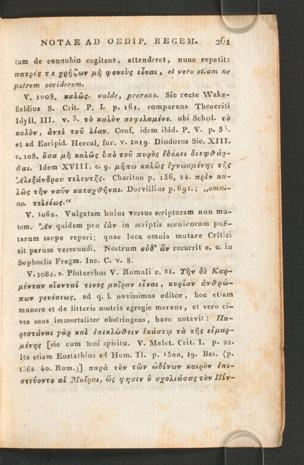 NOTAE AD OEDIP. REGEM. 261
tum de connubio cogitans, attenderet, nunc repetit:
πατρός τε χρῄζων μὴ φονεὺς εἶναι, et vero etiam ne
patrem occiderem.
V. 1008. καλῶς. valde, prorsus. Sic recte Wake-
fieldius S. Crit. P. I. p. 161. comparans Theocriti
Idyll. III. v. 3. τὸ καλὸν πεφιλαμένε. ubi Schol. τὸ
καλὸν, ἀντὶ τοῦ λίαν. Conf. idem ibid. P. V. p.
et ad Euripid. Hercul. fur. v. 1019. Diodorus Sic. XIII.
c. 108. ὅσα μὴ καλῶς ὑπὸ τοῦ πυρὸς ἐδόκει διεφθάρ-
θαι. Idem XVIII. c. 9. μήπω καλῶς ἐγνωσμένης τῆς
Ἀλεξάνδρου τελευτῆς. Chariton p. 136, 22. πρὶν κα-
λῶς τὴν ναῦν καταχθῆναι. Dorvillius p. 691.: „omni-
no. τελείως.“
V. 1062. Vulgatam huius versus scripturam non mu-
tem. Ἂν quidem pro ἐὰν in scriptis scenicorum poë-
tarum saepe reperi; quae loca omnia mutare Critici
sit parum verecundi. Nostrum οὐδ᾽ ἂν recurrit e. c. in
Sophoclis Fragm. Inc. C. v. 8.
V. 1081. s. Plutarchus V. Romuli c. 21. Τὴν δὲ Καρ-
μένταν οἴονταί τινες μοῖραν εἶναι, κυρίαν ἀνθρώ-
πων γενέσεως, ad q. l. novissimus editor, hoc etiam
munere et de litteris nostris egregie merens, et vero ci-
ves suos immortaliter obstringens, haec notavit: Πα-
ρεστάναι γὰρ καὶ ἐπικλώθειν ἑκάστῳ τὰ τῆς εἱμαρ-
μένης [sic cum leni spiritu. V. Melet. Crit. I. p. 22.
Ita etiam Eustathius ad Hom. Il. p. 1500, 19. Bas. (p.
1562 40. Rom.)] παρὰ τὸν τῶν ὠδίνων καιρὸν ἐπι-
στεύοντο αἱ Μοῖραι, ὥς φησιν ὁ σχολιάσας τὸν Πίν-